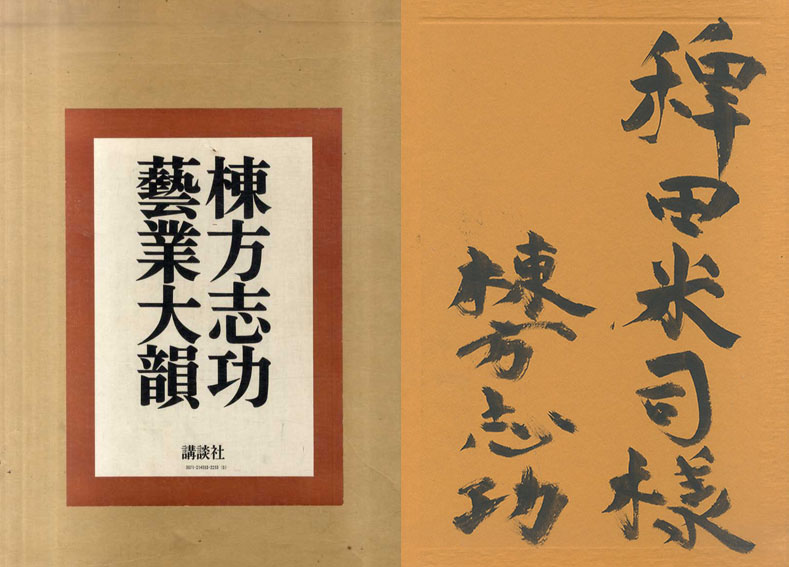 棟方志功
藝業大韻
講談社
稗田米司様
棟方志功